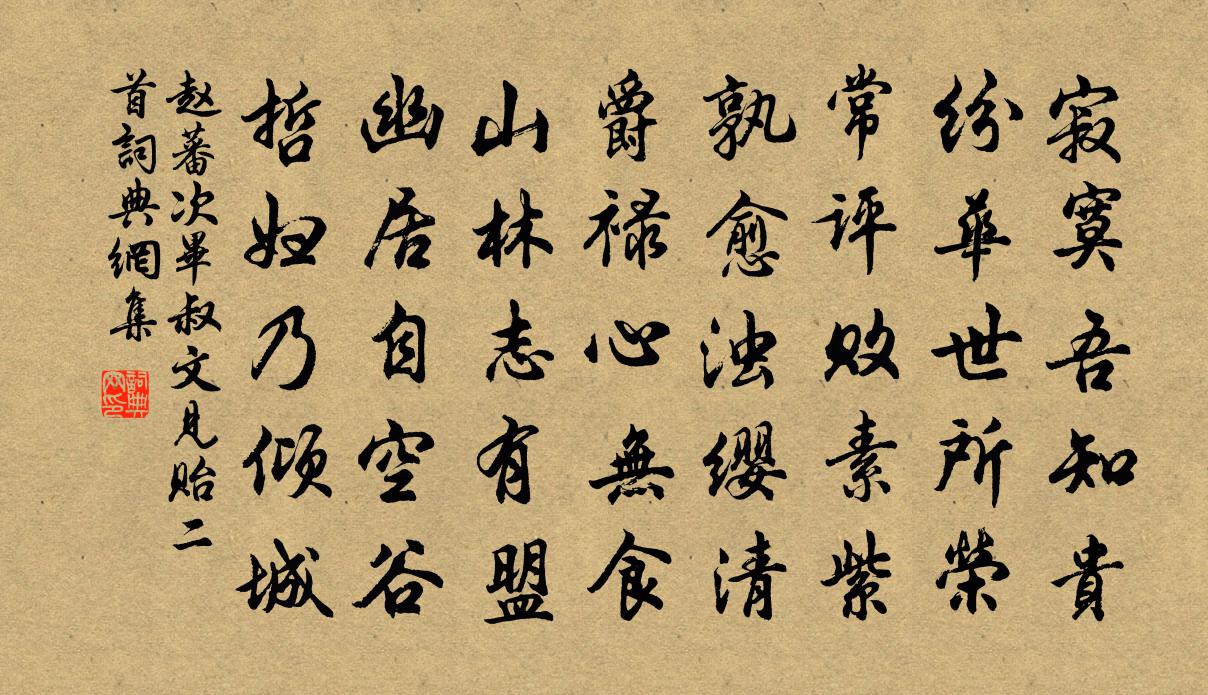 寂寞吾知貴
紛華世所榮
常評敗素紫
孰愈浊纓清
爵禄心無食
山林志有盟
幽居自空谷
哲妇乃傾城
赵蕃次畢叔文見貽二
首詞典網集
詞典